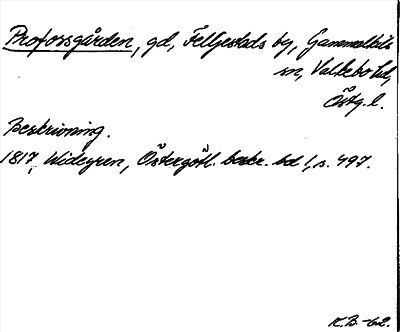 Profossgården, gd, Fellgestads by, Gammalkils
sn, Valkebo hd,
Östg. l.
Beskrivning.
1817, Widegren, Östergötl. beskr. bd 1, s. 497.
K.B. -62.